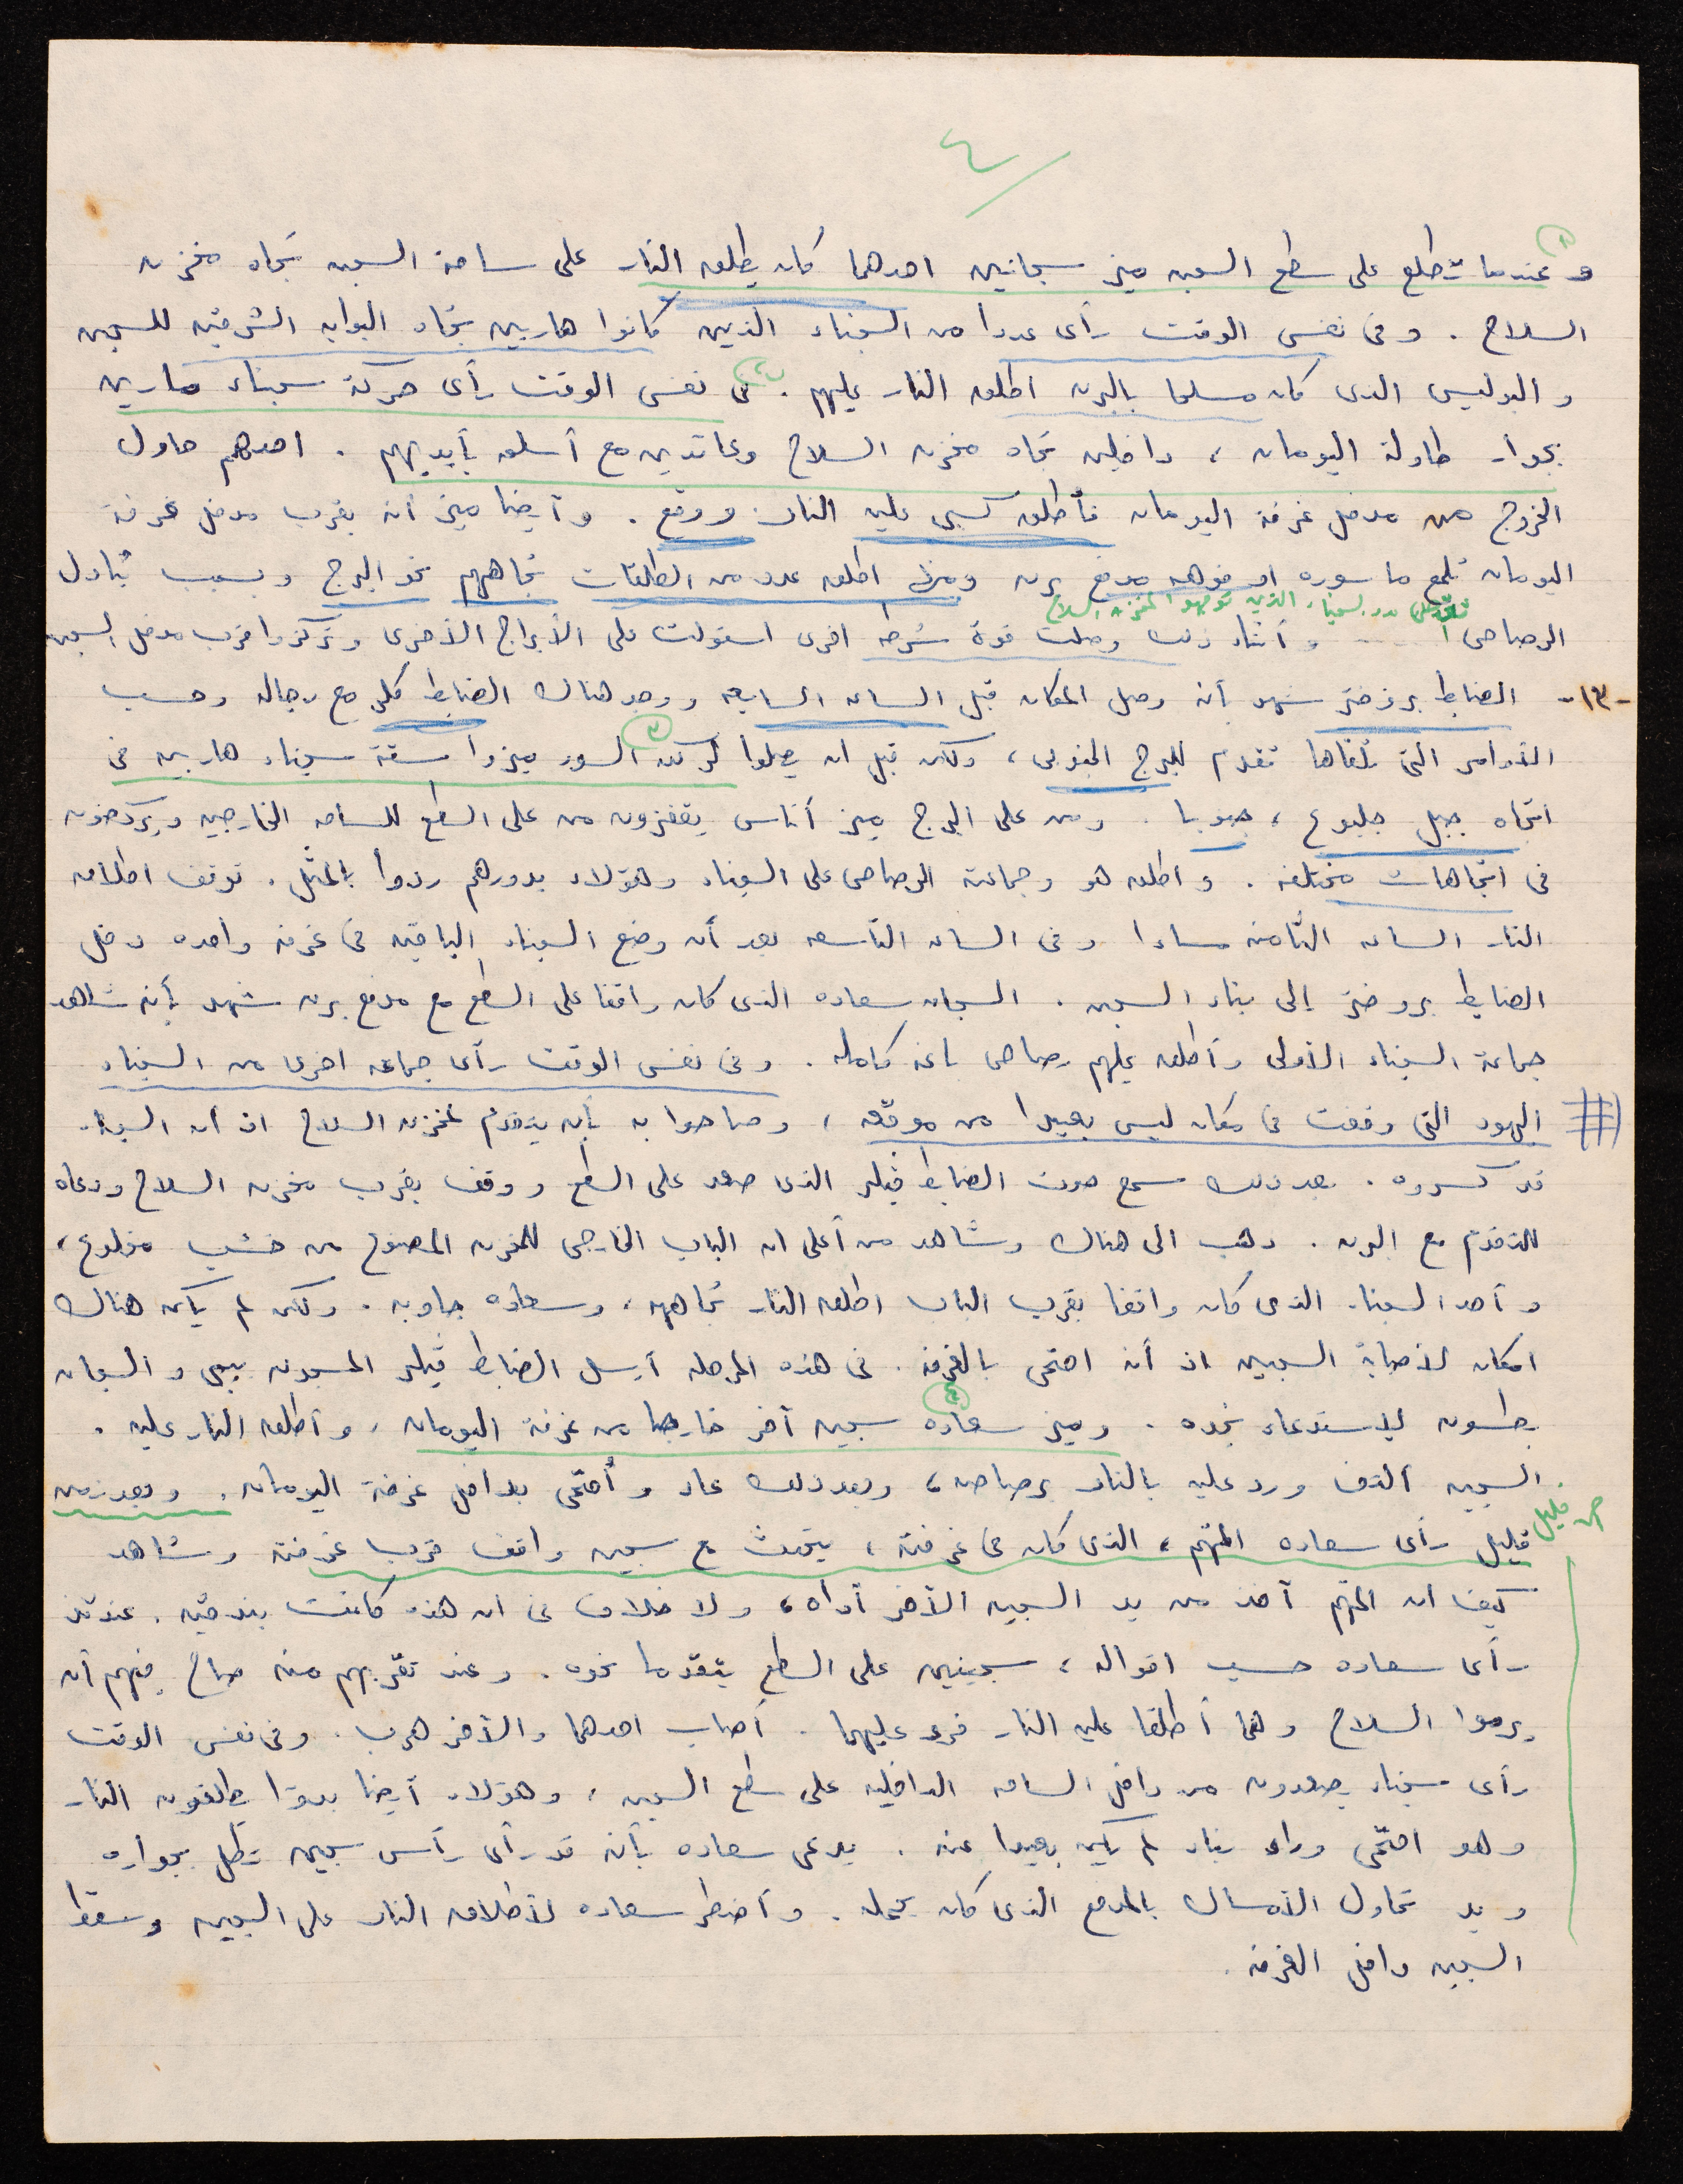 ٤
١
و عندما تطلع على سطح السجن ميز سجانين احدهما كان يطلق النار على ساحة السجن تجاه مخزن
السلاح . وفى نفس الوقت رأى عددا من السجناء الذين كانوا هاربين تجاه البوابه الشرقيه للسجن
و البوليس الذى كان مسلحا بالبرن اطلق النار عليهم . ٢ فى نفس الوقت رأى حركة سجناء مارين
بجوار طاولة اليومان ، داخلين تجاه مخزن السلاح وعائدين مع أسلحه بأيديهم . احدهم حاول
الخروج من مدخل غرفة اليومان فأطلق كسبى عليه النار ووقع . وأيضا ميز أنه بقرب مدخل غرفة
اليومان تلمع ماسوره او فوهه مدفع برن ومنه اطلق عدد من الطلقات تجاههم نحو البرج وبسبب تبادل
عدد السجناء الذين توجهوا لمخزن السلاح
الرصاص ...... و أثناء ذلك وصلت قوة شرطه اخرى استولت على الأبراج الأخرى وتركزوا قرب مدخل السجن
-١٣- الضابط بروفنر شهد بأنه وصل المكان قبل الساعه السابعه ووجد هناك الضابط فلر مع رجاله وحسب
الأوامر التى تلقاها تقدم للبرج الجنوبى ، ولكن قبل ان يصلوا لركن السور ٣ ميزوا ستة سجناء هاربين فى
اتجاه جبل جلبوع ، جنوبا . ومن على البرج ميز أناس يقفزون من على السطح للساحه الخارجيه ويركضون
فى اتجاهات مختلفه . و اطلق هو وجماعته الرصاص على السجناء وهؤلاء بدورهم ردوا بالمثل . توقف اطلاق
النار الساعه الثامنه مساءا وفى الساعه التاسعه بعد أن وضع السجناء الباقيه فى غرفه واحده دخل
الضابط بروفنر إلى بناء السجن . السجان سعاده الذى كان واقفا على السطح مع مدفع برن شهد بأنه شاهد
جماعة السجناء الأولى وأطلق عليهم رصاص باغه كامله . وفى نفس الوقت رأى جماعه اخرى من السجناء
اليهود التى وقفت فى مكان ليس بعيدا من موقعه ، وصاحوا به بأن يتقدم لمخزن السلاح اذ أن السجناء
قد كسروه . بعد ذلك سمع صوت الضابط فيلر الذى صعد على السطح ووقف بقرب مخزن السلاح ودعاه
للتقدم مع البرن . ذهب الى هناك وشاهد من أعلى ان الباب الخارجى للمخزن المصنوع من خشب مخلوع ،
و أحد السجناء الذى كان واقفا بقرب الباب اطلق النار تجاهه ، وسعاده جاوبه . ولكن لم يكن هناك
امكان لأصابة السجين اذ أنه احتمى بالغرفه . فى هذه المرحله أرسل الضابط فيلر المسجون بيبى والسجان
طسون لإستدعاء نجده . وميز سعاده ٤ سجين آخر خارجا من غرفة اليومان ، وأطلق النار عليه .
السجين التف ورد عليه بالنار برصاص ، وبعد ذلك عاد وأحتمى بداخل غرفة اليومان . وبعد زمن
قليل
قليل رأى سعاده المتهم ، الذى كان فى غرفته ، يتحدث مع سجين واقف قرب غرفته وشاهد
كيف ان المتهم أخذ من يد السجين الآخر أداه ، ولا خلاف فى ان هذه كانت بندقيه . عندئذ
رأى سعاده حسب اقواله ، سجينين على السطح يتقدما نحوه . وعند تقربهم منه صاح فيهم أن
يرموا السلاح وهما أطلقا عليه النار فرد عليهما . أصاب احدهما والآخر هرب . وفى نفس الوقت
رأى سجناء يصعدون من داخل الساحه الداخليه على سطح السجن ، وهؤلاء أيضا بدؤا يطلقون النار
وهو احتمى وراء بناء لم يكن بعيدا عنه . يدعى سعاده بأنه قد رأى رأس سجين تطل بجواره
و يد تحاول الأمساك بالمدفع الذى كان يحمله . و أضطر سعاده لأطلاق النار على السجين وسقط
السجين داخل الغرفه .